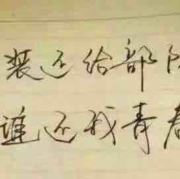 装还给部队
谁还我青春